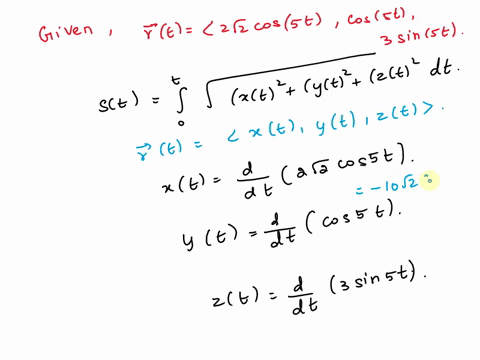 Given, r⃗(t) = < 2√2 cos(5t), cos(5t),
3 sin(5t).
S(t) = ∫₀ᵗ √(x(t)² + (y(t)² + (z(t)² dt.
r⃗(t) = < x(t), y(t), z(t) >.
x(t) = d/dt (2√2 cos5t).
= -10√2
y(t) = d/dt (cos5t).
z(t) = d/dt (3 sin5t).